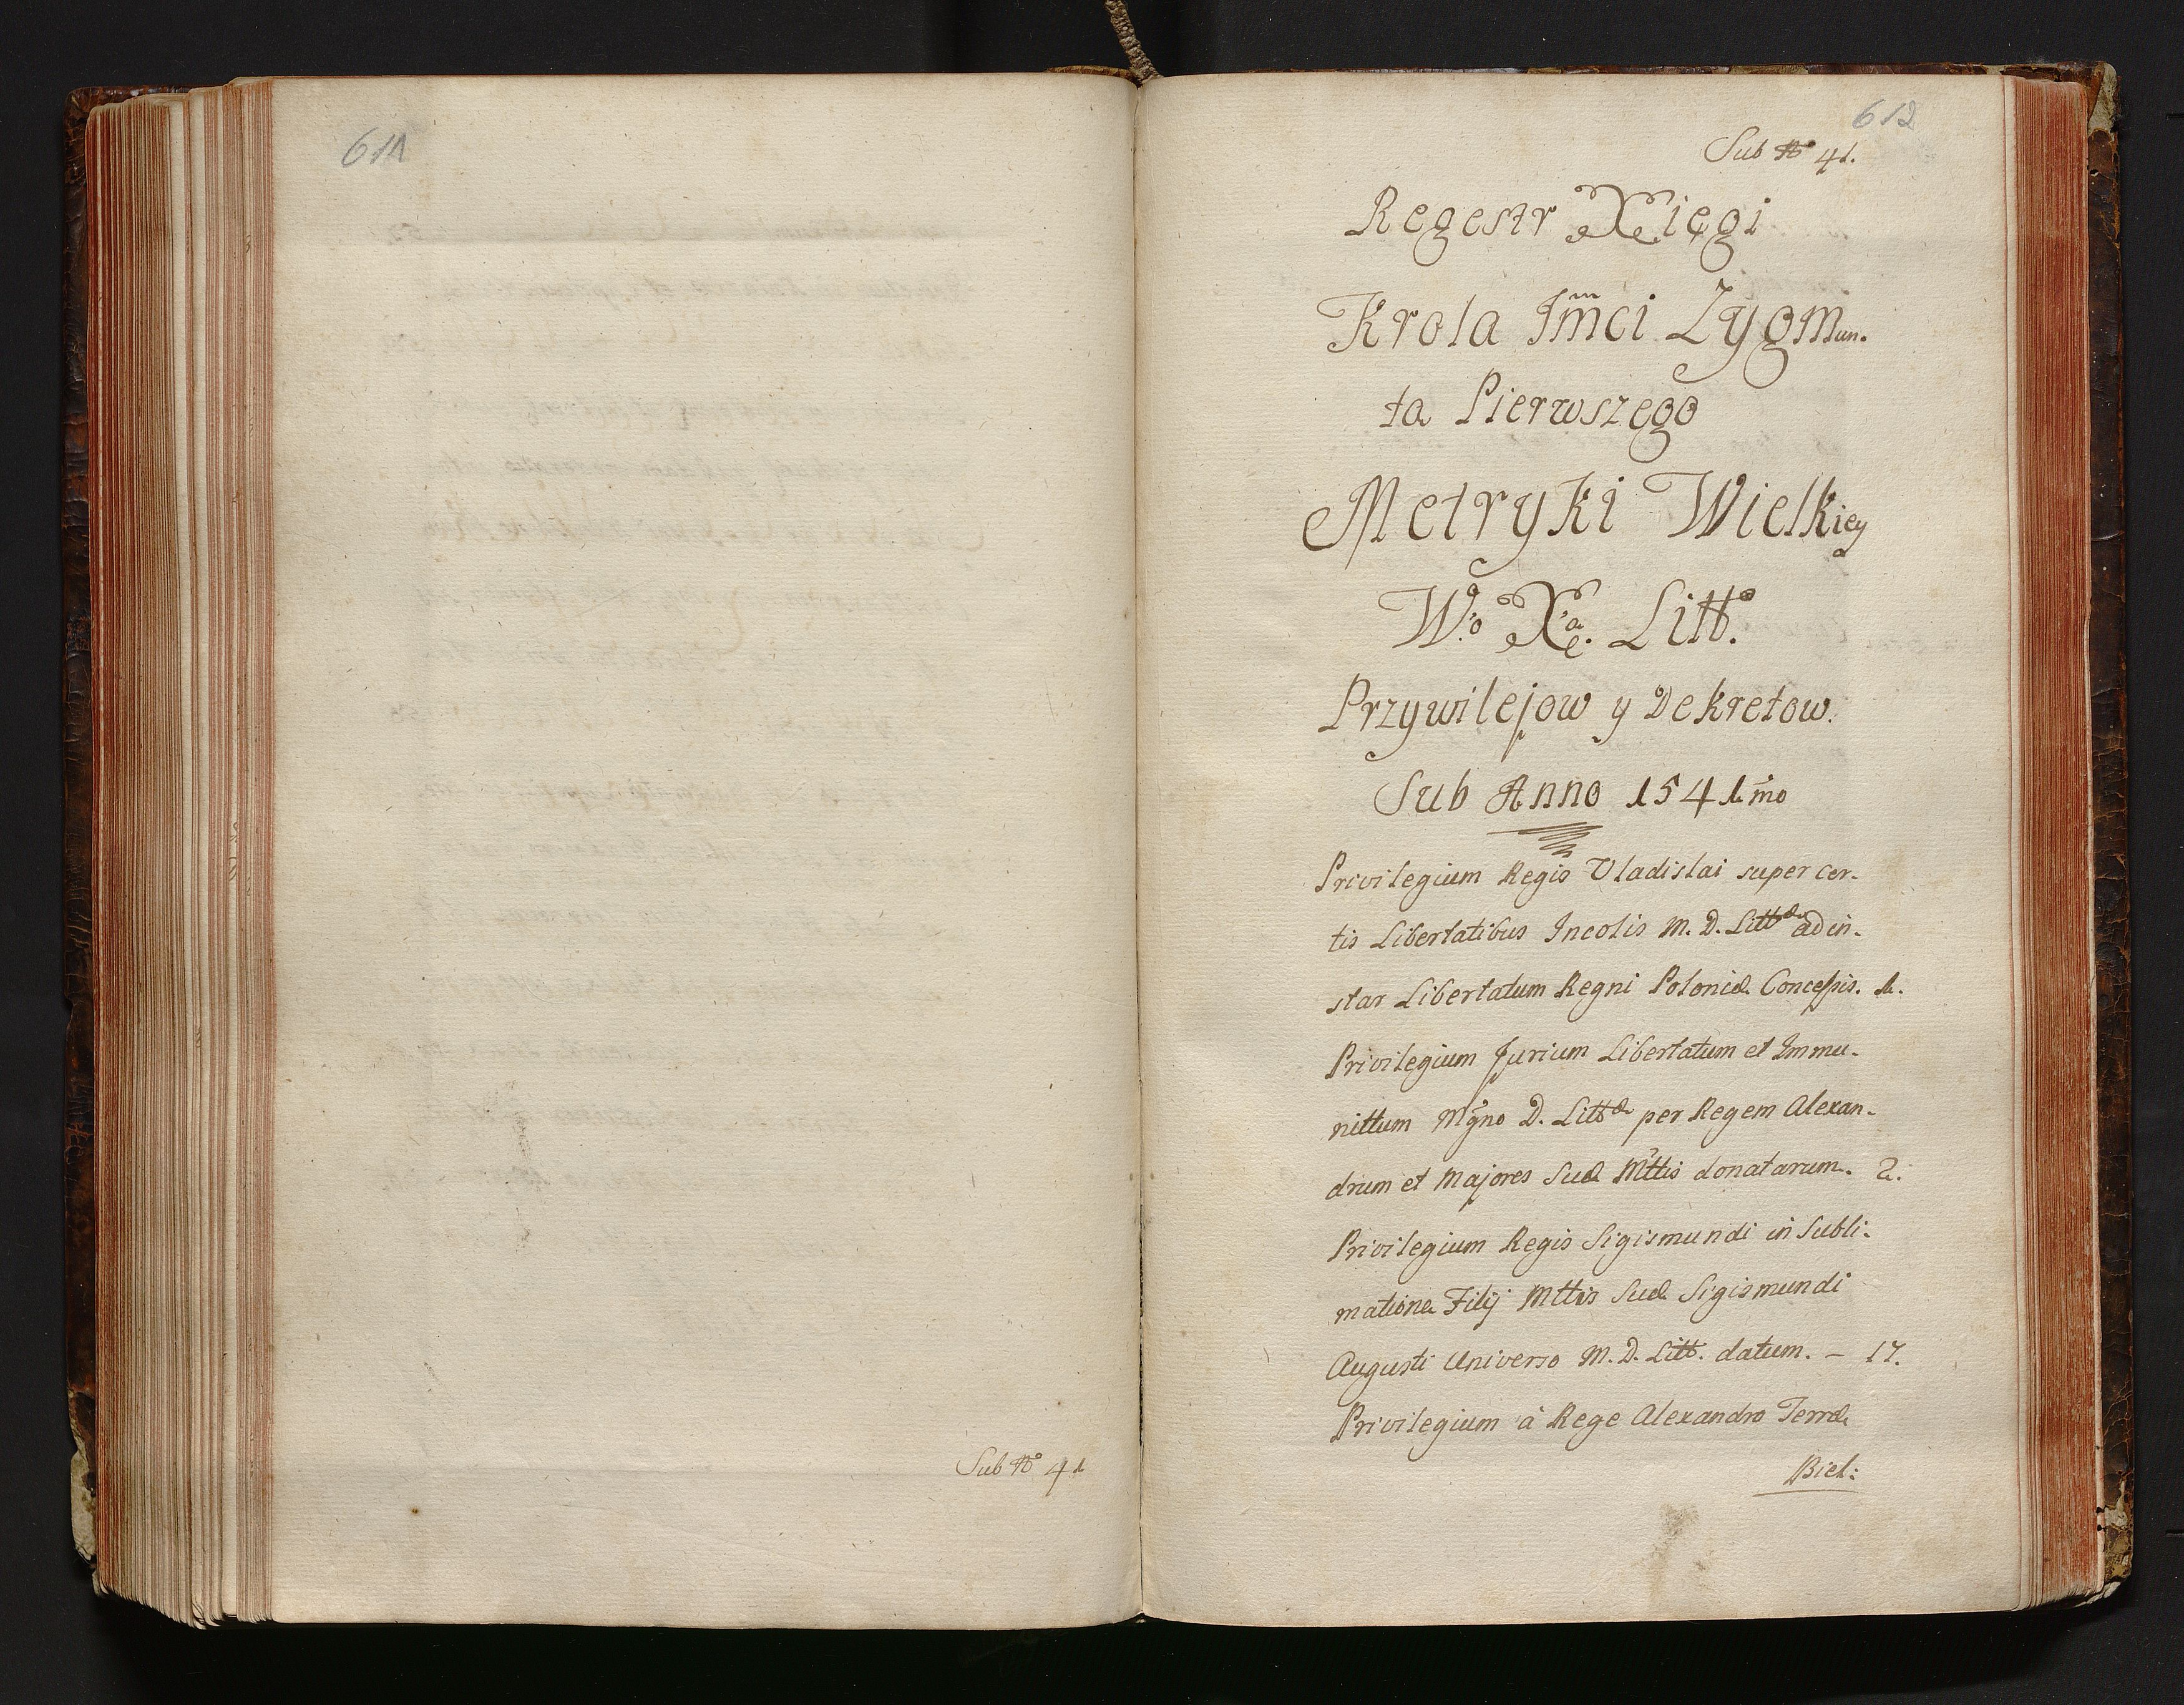 611
Sub No 41
612
Sub No 41.
Regestr Xięgi
Krola Jmci Zygmun.
ta Pierwszego
Metryki Wielkiey
Wo Xa. Litt.
Przywilejow y Dekretow.
Sub Anno 1541mo
Privilegium Regis Vladislai super cer-
tis Libertatibus Incolis M. D. Littæ ad in-
star Libertatum Regni Poloniæ Concessis. 1.
Privilegium Jurium Libertatum et Immu-
nittum Mgno D. Littæ per Regem Alexan-
drum et Majores Suæ Mttis donatarum. 2.
Privilegium Regis Sigismundi in Subli-
matione Filij Mttis Suæ Sigismundi
Augusti Universo M. D. Litt. datum. - 17.
Privilegium à Rege Alexandro Terræ
Biel: